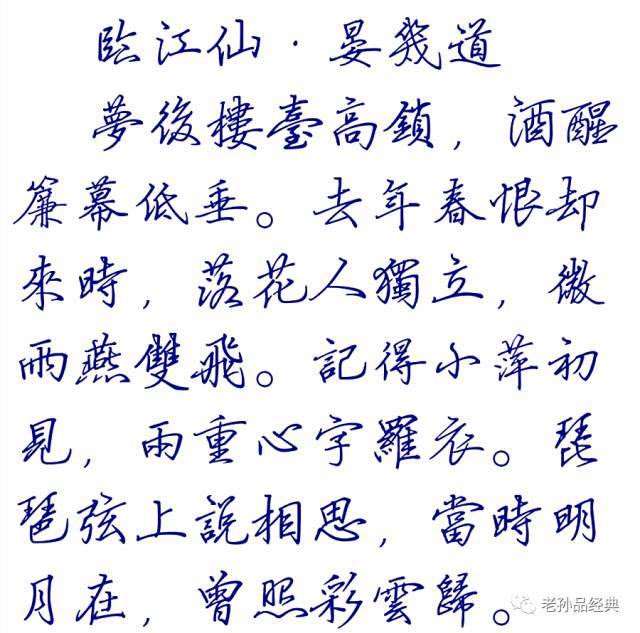 臨江仙·晏幾道
夢後樓臺高鎖，酒醒
簾幕低垂。去年春恨却
來時，落花人獨立，微
雨燕雙飛。記得小萍初
見，兩重心字羅衣。琵
琶弦上說相思，當時明
月在，曾照彩雲歸。
老孙品经典